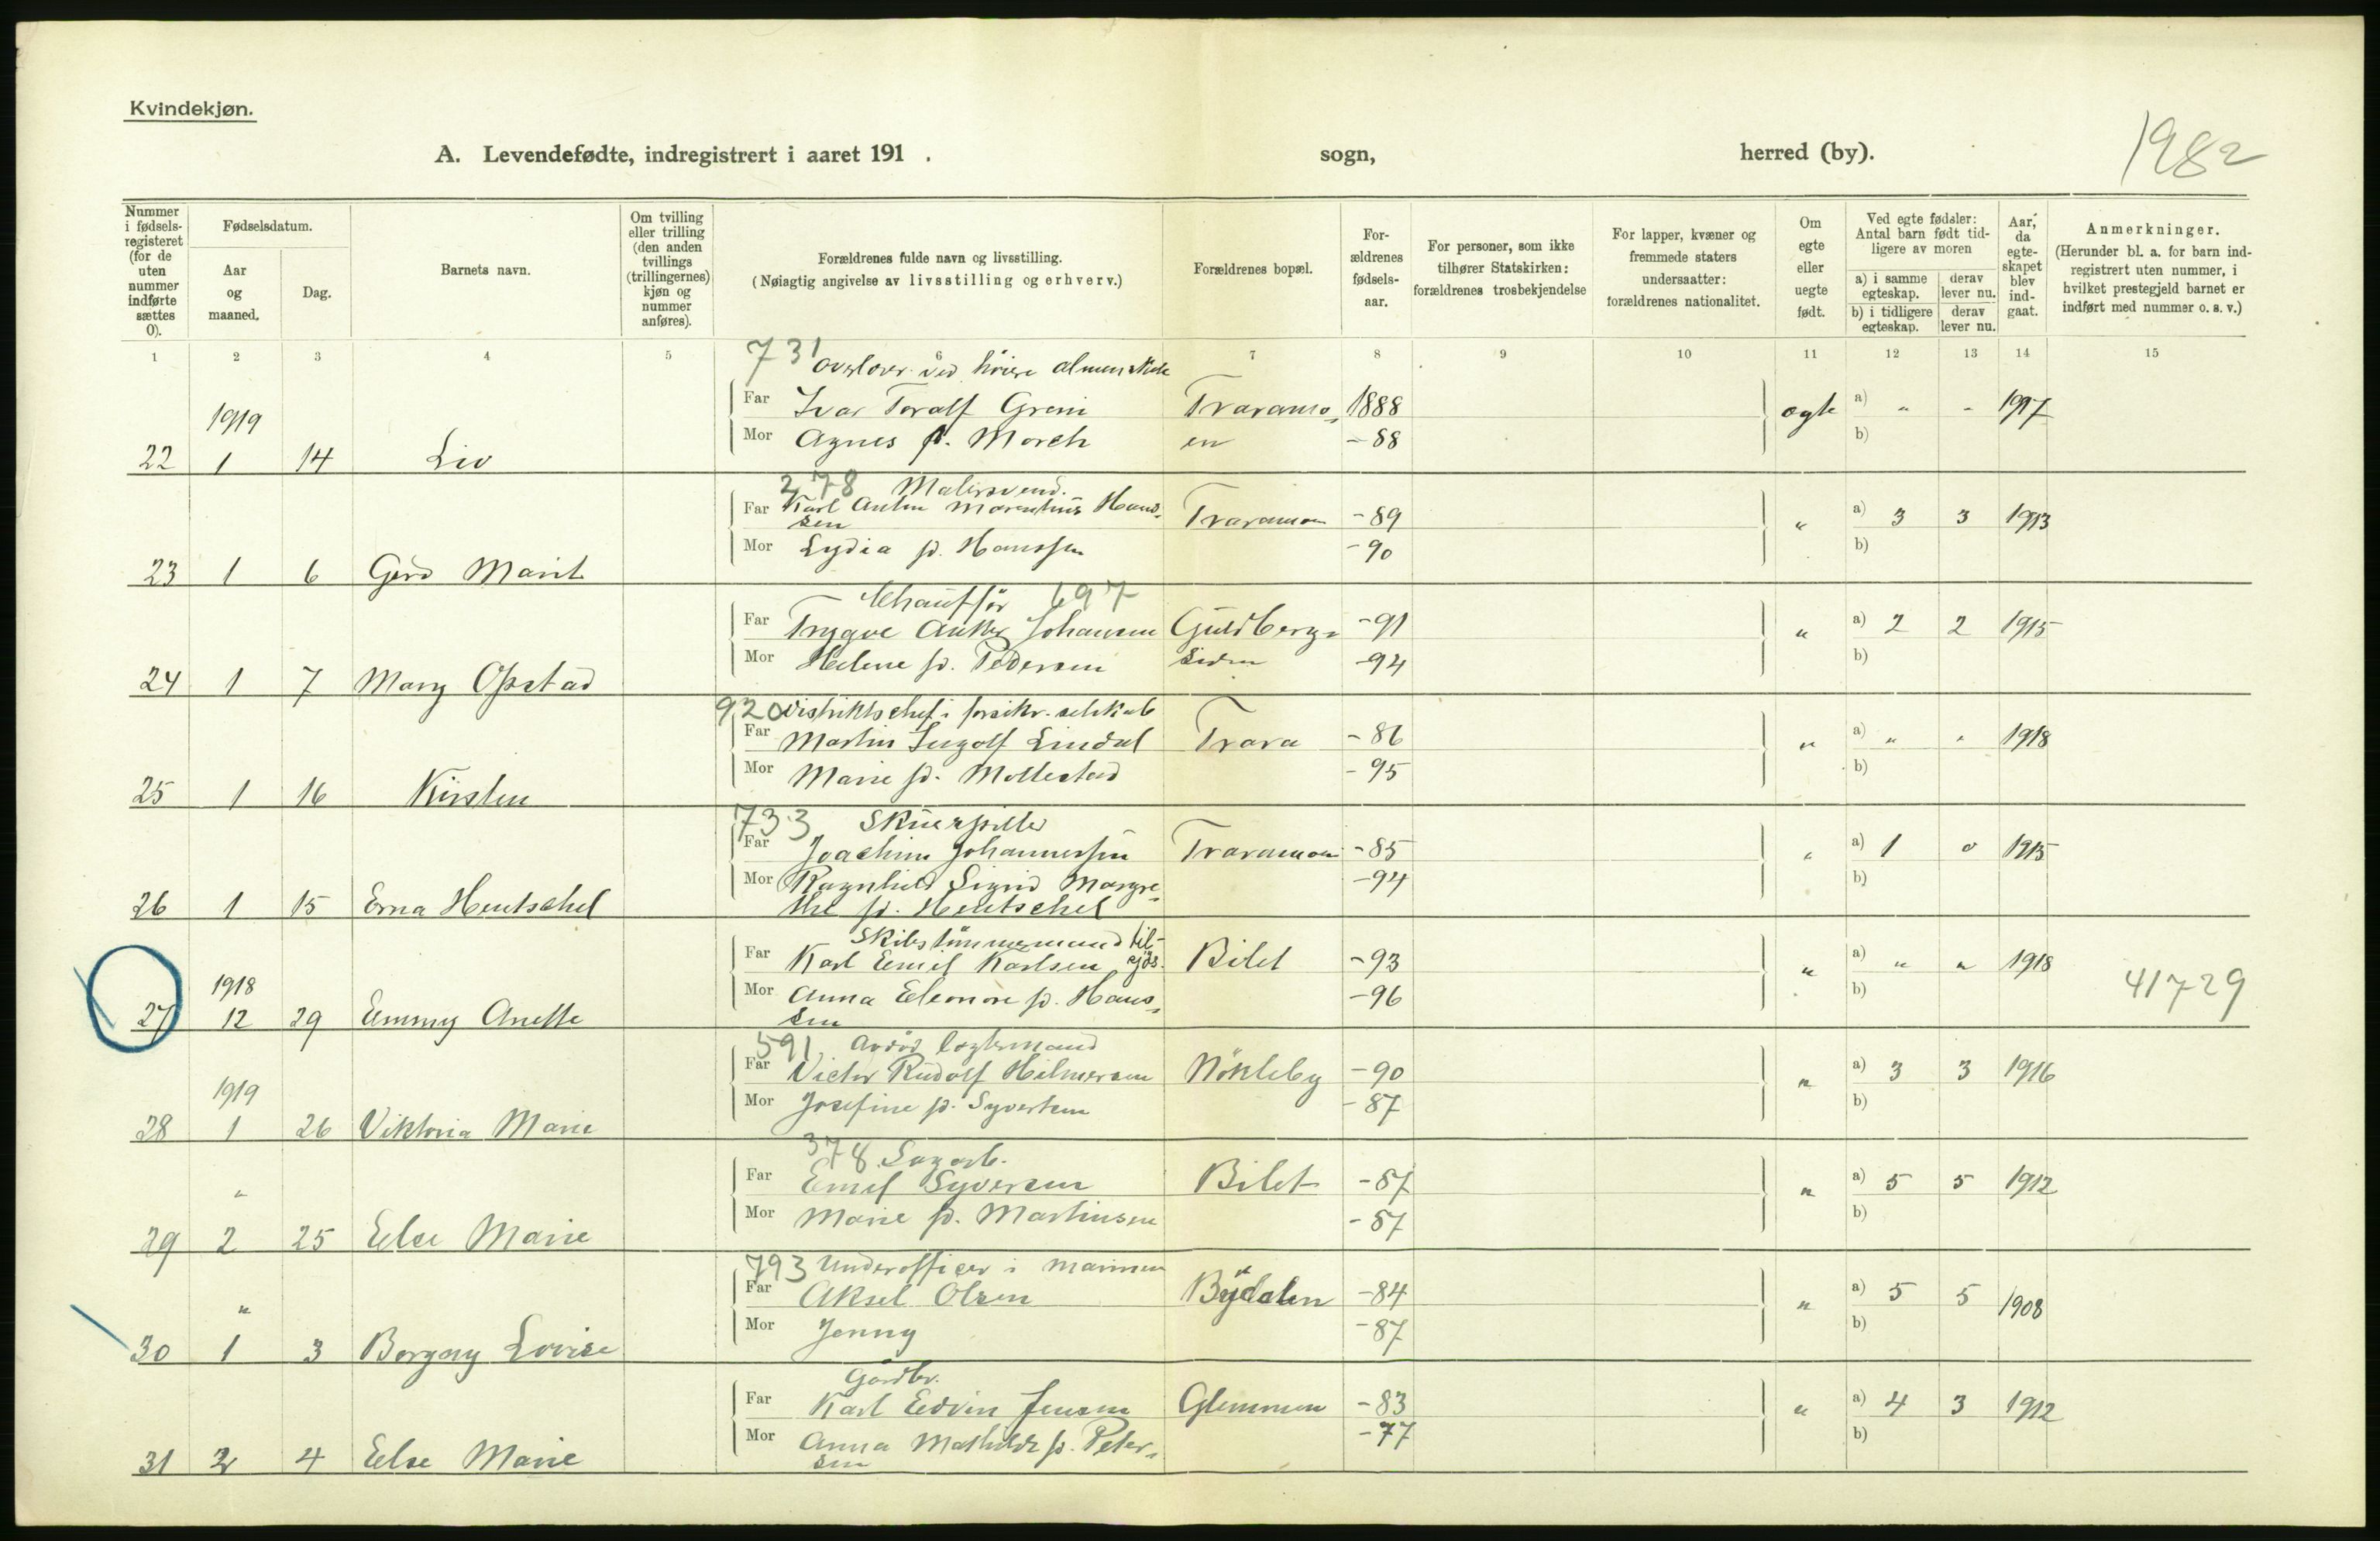 Kvindekjøn.
A. Levendefødte, indregistrert i aaret 191 . sogn, herred (by).
1982
Nummer i fødselsregisteret (for de uten nummer indførte sættes 0).
Fødselsdatum.
Aar og maaned.
Dag.
Barnets navn.
Om tvilling eller trilling (den anden tvillings (trillingernes) kjøn og nummer anføres).
Forældrenes fulde navn og livsstilling.
(Nøiagtig angivelse av livsstilling og erhverv.)
Forældrenes bopæl.
Forældrenes fødselsaar.
For personer, som ikke tilhører Statskirken: forældrenes trosbekjendelse
For lapper, kvæner og fremmede staters undersaatter: forældrenes nationalitet.
Om egte eller uegte født.
Ved egte fødsler: Antal barn født tidligere av moren
a) i samme egteskap. derav lever nu.
b) i tidligere egteskap. derav lever nu.
Aar, da egteskapet blev indgaat.
Anmerkninger.
(Herunder bl. a. for barn indregistrert uten nummer, i hvilket prestegjeld barnet er indført med nummer o. s. v.)
1 2 3 4 5 6 7 8 9 10 11 12 13 14 15
731 ved høiere almenskole
Far Ivar Toralf Greni Traramo- 1888 ægte a) " " 1917
1919
Mor Agnes f. Morch en -88 b)
22 1 14 Liv
278 Malersvend.
Far Karl Anton Marentius Hans- Traramoen -89 " a) 3 3 1913
sen
Mor Lydia f. Hanssen -90 b)
23 1 6 Gerd Marit
Chauffør 697
Far Trygve Anker Johansen Guldbergs- -91 " a) 2 2 1915
Mor Helene f. Pedersen siden -94 b)
24 1 7 Mary Opstad
920 Distriktschef i forsikr. selskab
Far Martin Ingolf Lindal Trara -86 " a) " " 1918
Mor Marie f. Mollestad -95 b)
25 1 16 Kirsten
733 Skuespiller
Far Joachim Johannessen Traramoen -85 " a) 1 0 1915
Mor Ragnhild Sigrid Margre- -94 b)
26 1 15 Erna Hentschel the f. Hentschel
Skibstømmermand til-
Far Karl Emil Karlsen sjøs. Bilet -93 " a) " " 1918
1918 41729
Mor Anna Eleonore f. Hans- -96 b)
27 12 29 Emmy Anette sen
591 Avdød
Far Victor Rudolf Hilmersen Nökleby -90 " a) 3 3 1916
1919
Mor Josefine f. Syvertsen -87 b)
28 1 26 Viktoria Marie
378 Sagarb.
Far Emil Syversen Bilet -87 " a) 5 5 1912
"
Mor Marie f. Martinsen -87 b)
29 2 25 Else Marie
793 Underofficer i marinen
Far Aksel Olsen Bydalen -84 " a) 5 5 1908
"
Mor Jenny -87 b)
30 1 3 Borgny Lovise
Gårdbr.
Far Karl Edvin Jensen Glemmen -83 " a) 4 3 1912
Mor Anna Mathilde f. Peter- -77 b)
31 2 4 Else Marie sen